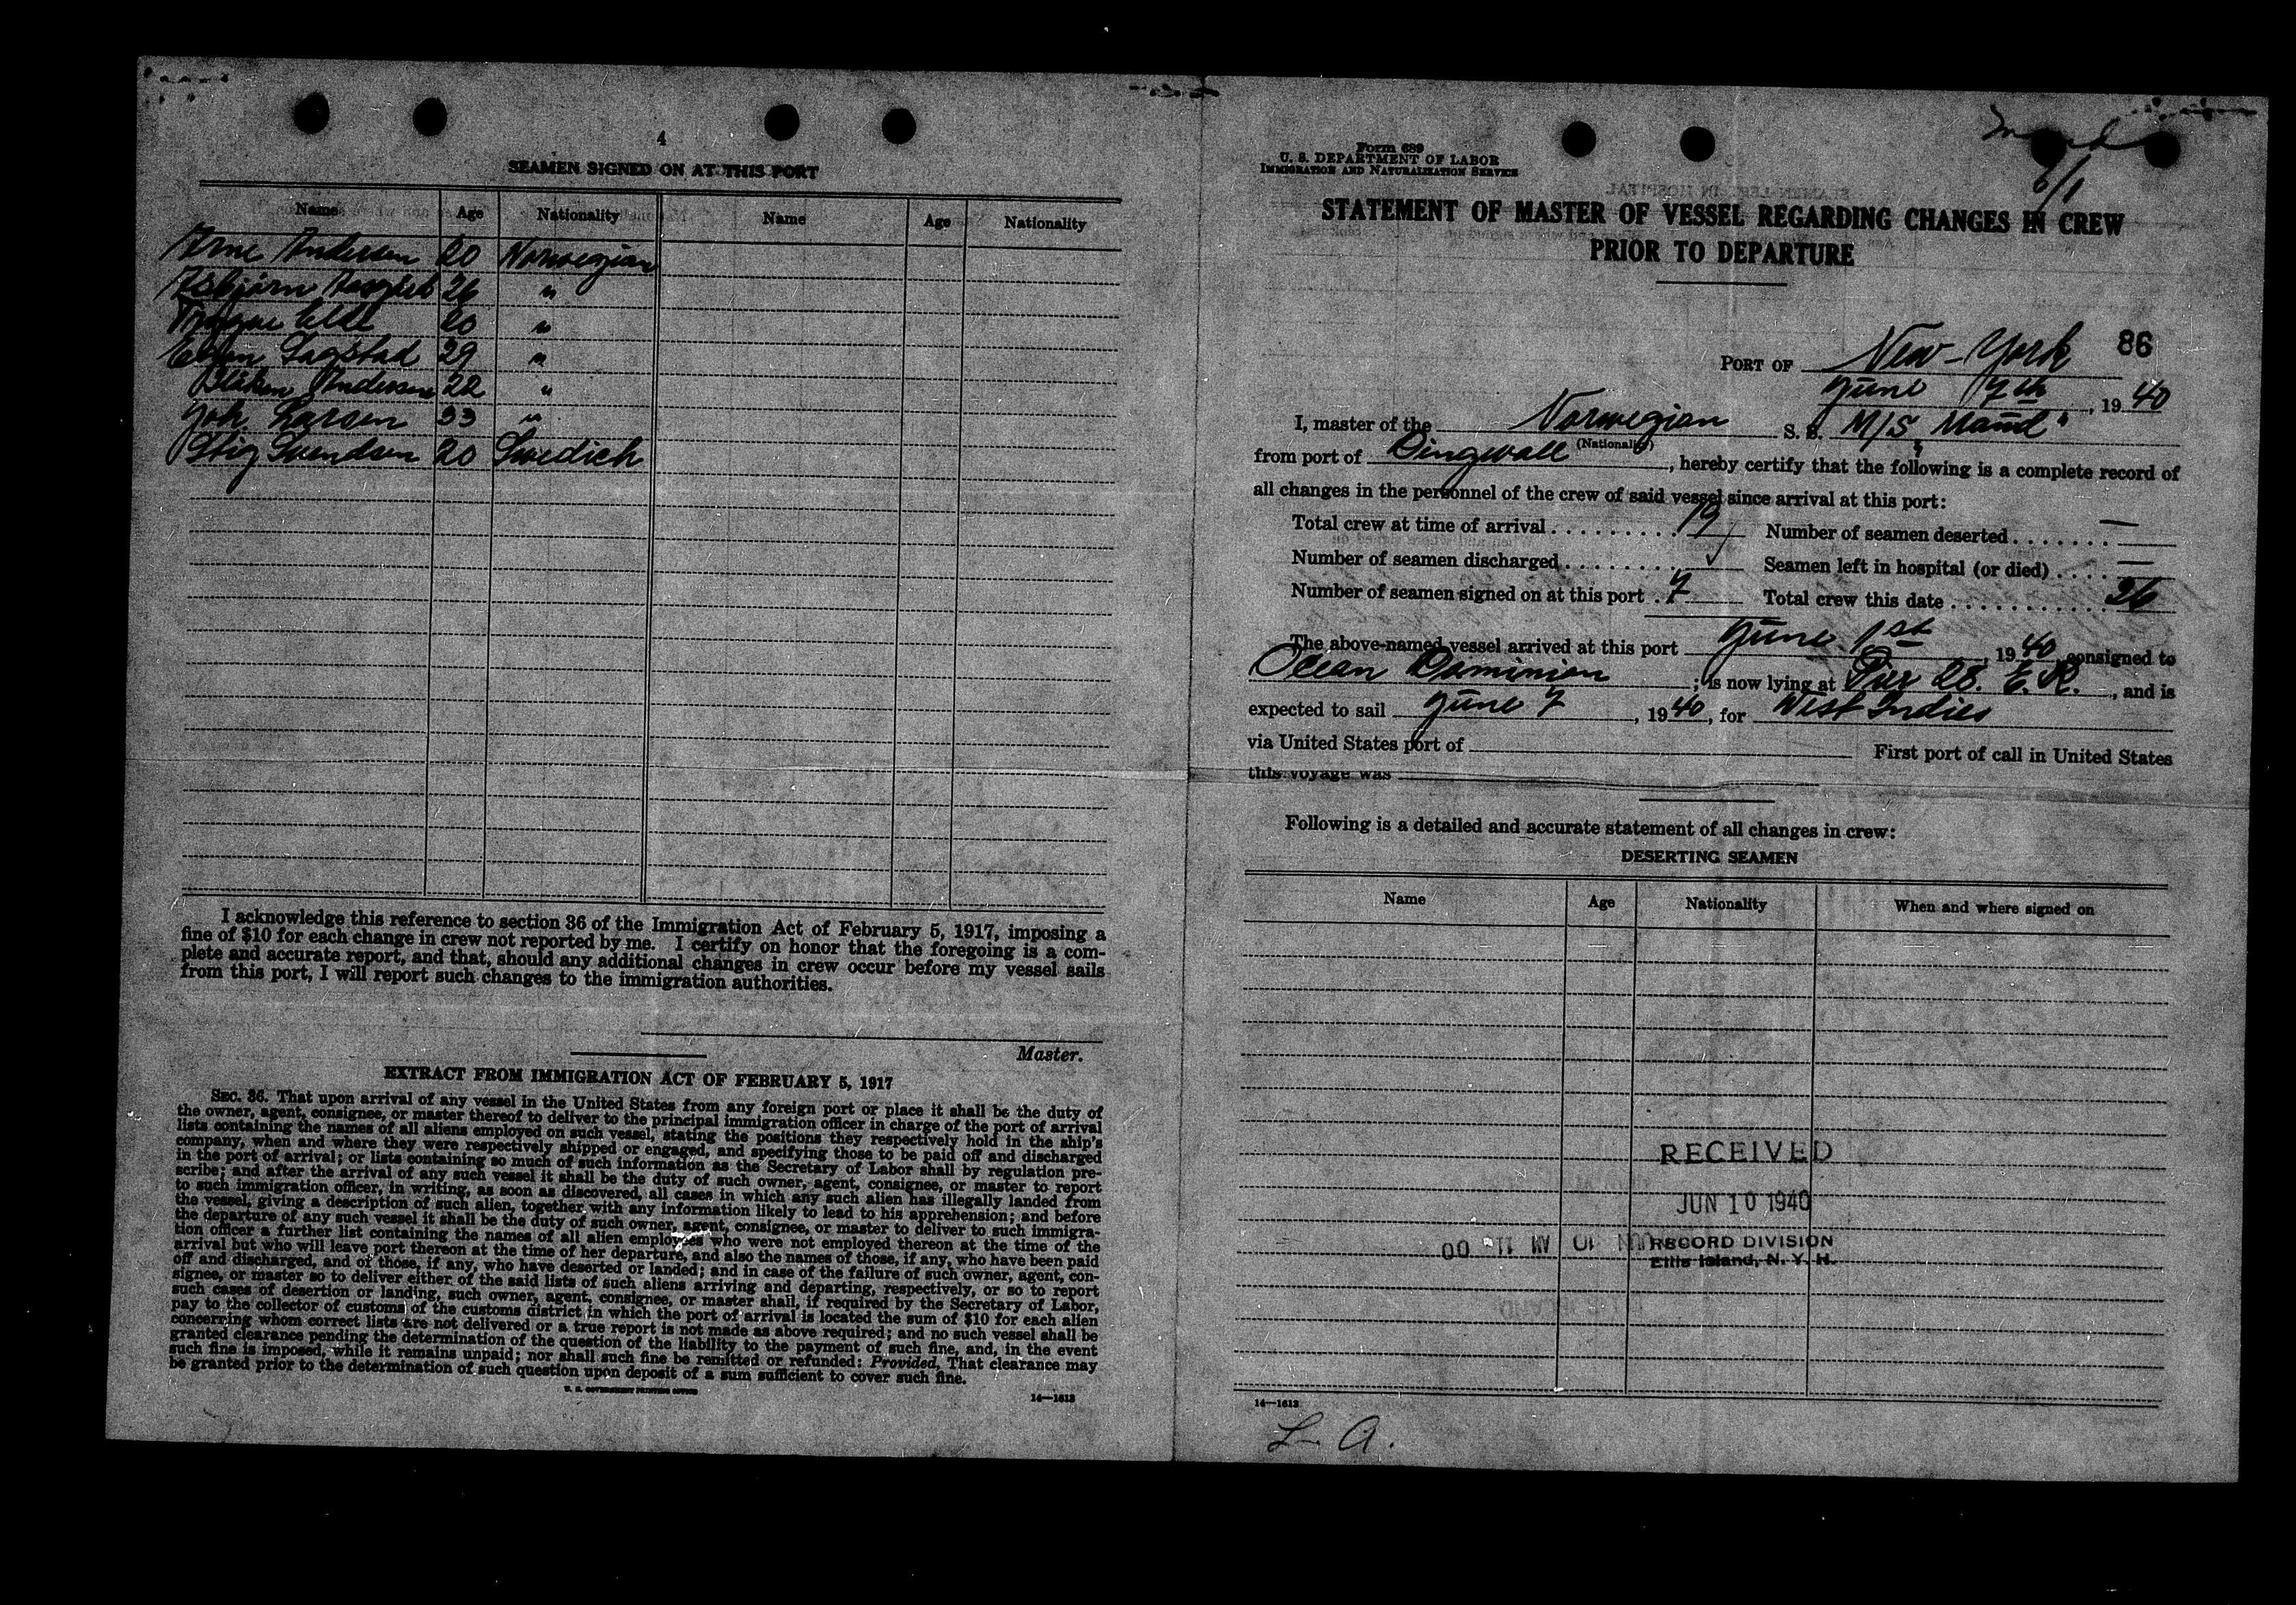 4
SEAMEN SIGNED ON AT THIS PORT
Name Age Nationality Name Age Nationality
Arne Andersen 20 Norwegian
Asbjørn 26 "
Trygve 20 "
Lagstad 29 "
Andersen 22 "
Joh. Larsen 33 "
Stig Svendsen 20 Swedich
I acknowledge this reference to section 36 of the Immigration Act of February 5, 1917, imposing a
fine of $10 for each change in crew not reported by me. I certify on honor that the foregoing is a com-
plete and accurate report, and that, should any additional changes in crew occur before my vessel sails
from this port, I will report such changes to the immigration authorities.
Master.
EXTRACT FROM IMMIGRATION ACT OF FEBRUARY 5, 1917
SEC. 36. That upon arrival of any vessel in the United States from any foreign port or place it shall be the duty of
the owner, agent, consignee, or master thereof to deliver to the principal immigration officer in charge of the port of arrival
lists containing the names of all aliens employed on such vessel, stating the positions they respectively hold in the ship's
company, when and where they were respectively shipped or engaged, and specifying those to be paid off and discharged
in the port of arrival; or lists containing so much of such information as the Secretary of Labor shall by regulation pre-
scribe; and after the arrival of any such vessel it shall be the duty of such owner, agent, consignee, or master to report
to such immigration officer, in writing, as soon as discovered, all cases in which any such alien has illegally landed from
the vessel, giving a description of such alien, together with any information likely to lead to his apprehension; and before
the departure of any such vessel it shall be the duty of such owner, agent, consignee, or master to deliver to such immigra-
tion officer a further list containing the names of all alien employees who were not employed thereon at the time of the
arrival but who will leave port thereon at the time of her departure, and also the names of those, if any, who have been paid
off and discharged, and of those, if any, who have deserted or landed; and in case of the failure of such owner, agent, con-
signee, or master so to deliver either of the said lists of such aliens arriving and departing, respectively, or so to report
such cases of desertion or landing, such owner, agent, consignee, or master shall, if required by the Secretary of Labor,
pay to the collector of customs of the customs district in which the port of arrival is located the sum of $10 for each alien
concerning whom correct lists are not delivered or a true report is not made as above required; and no such vessel shall be
granted clearance pending the determination of the question of the liability to the payment of such fine, and, in the event
such fine is imposed, while it remains unpaid; nor shall such fine be remitted or refunded: Provided, That clearance may
be granted prior to the determination of such question upon deposit of a sum sufficient to cover such fine.
U. S. GOVERNMENT PRINTING OFFICE 14—1613
Form 689
U. S. DEPARTMENT OF LABOR
IMMIGRATION AND NATURALIZATION SERVICE
6/1
STATEMENT OF MASTER OF VESSEL REGARDING CHANGES IN CREW
PRIOR TO DEPARTURE
86
PORT OF New-York
June 7th, 1940
I, master of the Norwegian S. S. M/S "Maud"
(Nationality)
from port of Dingwall, hereby certify that the following is a complete record of
all changes in the personnel of the crew of said vessel since arrival at this port:
Total crew at time of arrival 19 Number of seamen deserted —
Number of seamen discharged Seamen left in hospital (or died) —
Number of seamen signed on at this port 7 Total crew this date 26
The above-named vessel arrived at this port June 1st 1940 consigned to
Ocean Dominion; is now lying at Pier 28. E. R., and is
expected to sail June 7, 1940, for West Indies
via United States port of First port of call in United States
this voyage was
Following is a detailed and accurate statement of all changes in crew:
DESERTING SEAMEN
Name Age Nationality When and where signed on
RECEIVED
JUN 10 1940
RECORD DIVISION
Ellis Island, N. Y. H.
JUN 10 AM 11 00
14—1613
L. A.